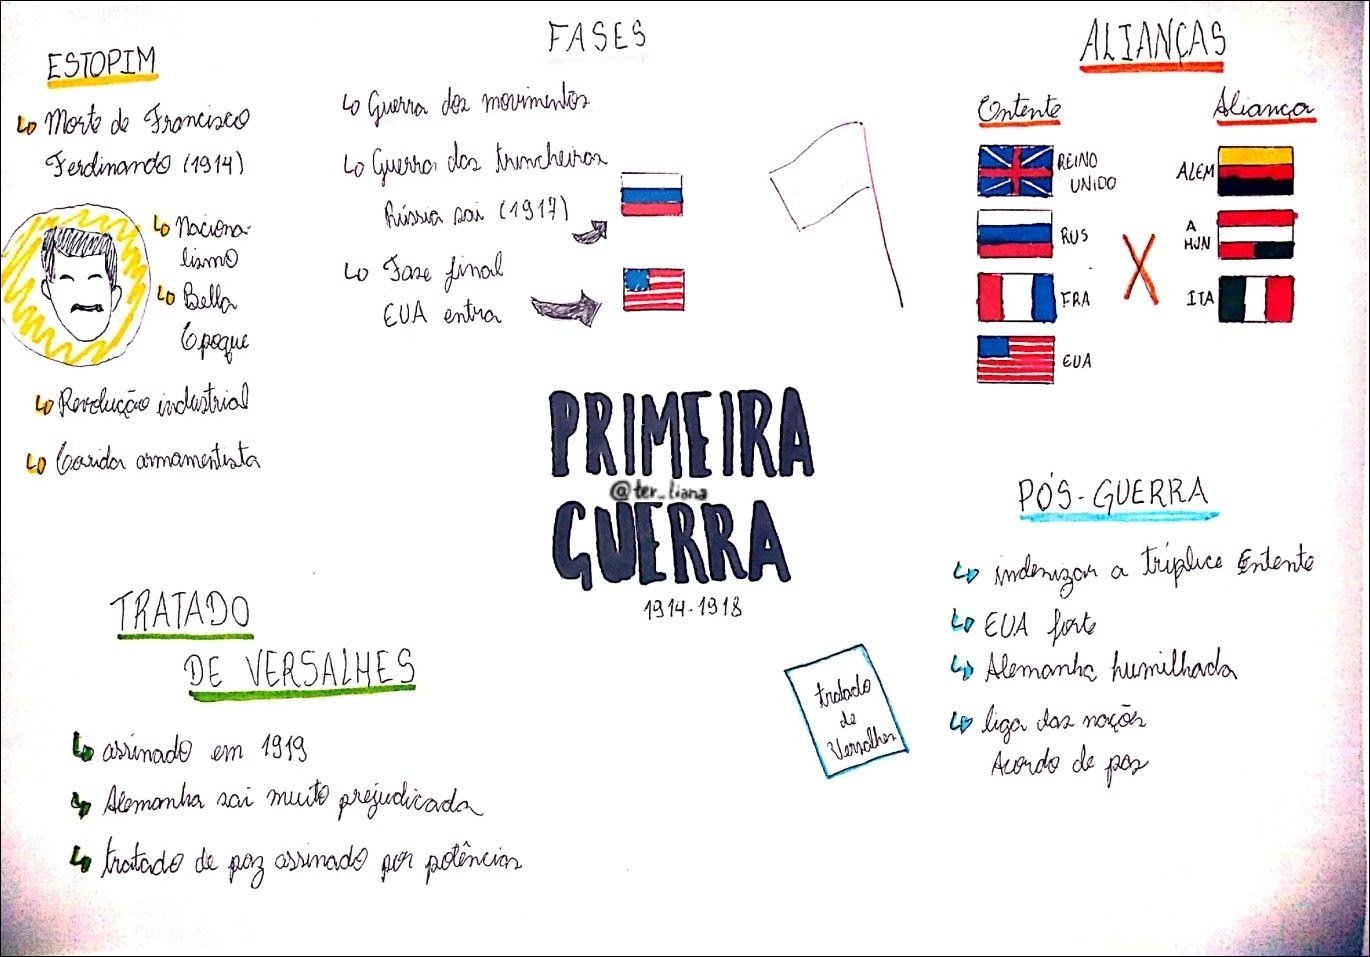 ESTOPIM
Morte de Francisco
Ferdinando (1914)
Naciona-
lismo
Bella
Epoque
Revolução industrial
Corrida armamentista
FASES
Guerra dos movimentos
Guerra das trincheiras
Rússia sai (1917)
Fase final
EUA entra
ALIANÇAS
Entente
REINO
UNIDO
RUS
FRA
EUA
X
Aliança
ALEM
A
HUN
ITA
PRIMEIRA
@ter_liana
GUERRA
1914-1918
TRATADO
DE VERSALHES
assinado em 1919
Alemanha sai muito prejudicada
tratado de paz assinado por potências
tratado
de
Versalhes
PÓS-GUERRA
indenizar a tríplice Entente
EUA forte
Alemanha humilhada
liga das nações
Acordo de paz